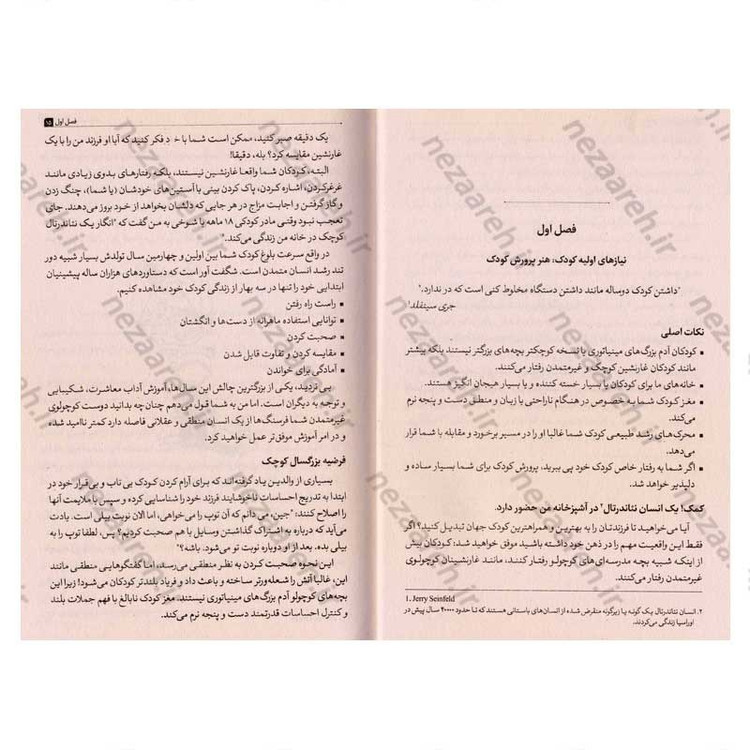 فصل اول
نیازهای اولیه کودک، هنر پرورش کودک
"داشتن کودک دوساله مانند داشتن دستگاه مخلوط کنی است که در ندارد."
جری سینفلد¹
نکات اصلی
▪ کودکان آدم بزرگ‌های مینیاتوری یا نسخه کوچکتر بچه‌های بزرگتر نیستند بلکه بیشتر
مانند کودکان غارنشین کوچک و غیرمتمدن رفتار می‌کنند.
▪ خانه‌های ما برای کودکان یا بسیار خسته کننده و یا بسیار هیجان انگیز هستند.
▪ مغز کودک شما به خصوص در هنگام ناراحتی با زبان و منطق دست و پنجه نرم
می‌کند.
▪ محرک‌های رشد طبیعی کودک شما غالبا او را در مسیر برخورد و مقابله با شما قرار
می‌دهد.
▪ اگر شما به رفتار خاص کودک خود پی ببرید، پرورش کودک برای شما بسیار ساده و
دلپذیر خواهد شد.
کمک! یک انسان نئاندرتال² در آشپزخانه من حضور دارد.
آیا می‌خواهید تا فرزندتان را به بهترین و همراهترین کودک جهان تبدیل کنید؟ اگر
فقط این واقعیت مهم را در ذهن خود داشته باشید موفق خواهید شد: کودکان بیش
از اینکه شبیه بچه مدرسه‌ای های کوچولو رفتار کنند، مانند غارنشینان کوچولوی
غیرمتمدن رفتار می‌کنند.
1. Jerry Seinfeld
۲. انسان نئاندرتال یک گونه یا زیرگونه منقرض شده از انسان‌های باستانی هستند که تا حدود ۴۰۰۰۰ سال پیش در
اوراسیا زندگی می‌کردند.
فصل اول ۱۵
یک دقیقه صبر کنید، ممکن است شما با خود فکر کنید که آیا او فرزند من را با یک
غارنشین مقایسه کرد؟ بله، دقیقا!
البته، کودکان شما واقعا غارنشین نیستند، بلکه رفتارهای بدوی زیادی مانند
غرغرکردن، اشاره کردن، پاک کردن بینی با آستین‌های خودشان (یا شما)، چنگ زدن
و گاز گرفتن و اجابت مزاج در هر جایی که دلشان بخواهد از خود بروز می‌دهند. جای
تعجب نبود وقتی مادر کودکی ۱۸ ماهه با شوخی به من گفت که "انگار یک نئاندرتال
کوچک در خانه من زندگی می‌کند."
در واقع سرعت بلوغ کودک شما بین اولین و چهارمین سال تولدش بسیار شبیه دور
تند رشد انسان متمدن است. شگفت آور است که دستاوردهای هزاران ساله پیشینیان
ابتدایی خود را تنها در سه بهار از زندگی کودک خود مشاهده کنیم.
▪ راست راه رفتن
▪ توانایی استفاده ماهرانه از دست‌ها و انگشتان
▪ صحبت کردن
▪ مقایسه کردن و تفاوت قایل شدن
▪ آمادگی برای خواندن
بی تردید، یکی از بزرگترین چالش این سال‌ها، آموزش آداب معاشرت، شکیبایی
و توجه به دیگران است. اما من به شما قول می‌دهم چنان چه بدانید دوست کوچولوی
غیرمتمدن شما فرسنگ‌ها از یک انسان منطقی و عقلانی فاصله دارد کمتر ناامید شده
و در امر آموزش موفق‌تر عمل خواهید کرد.
فرضیه بزرگسال کوچک
بسیاری از والدین یاد گرفته‌اند که برای آرام کردن کودک بی تاب و بی‌قرار خود در
ابتدا به تدریج احساسات ناخوشایند فرزند خود را شناسایی کرده و سپس با ملایمت آنها
را اصلاح کنند: "جین، می‌دانم که آن توپ را می‌خواهی، اما الان نوبت بیلی است. یادت
می‌آید که درباره به اشتراک گذاشتن وسایل با هم صحبت کردیم؟ پس، لطفا توپ را به
بیلی بده. بعد از او دوباره نوبت تو می‌شود. باشه؟"
این نحوه صحبت کردن به نظر منطقی می‌رسد، اما گفتگوهایی منطقی مانند
این، غالبا آتش را شعله‌ورتر ساخته و باعث داد و فریاد بلندتر کودکان می‌شود! زیرا این
بچه‌های کوچولو آدم بزرگ‌های مینیاتوری نیستند. مغز کودک نابالغ با فهم جملات بلند
و کنترل احساسات قدرتمند دست و پنجه نرم می‌کند
nezaareh.ir